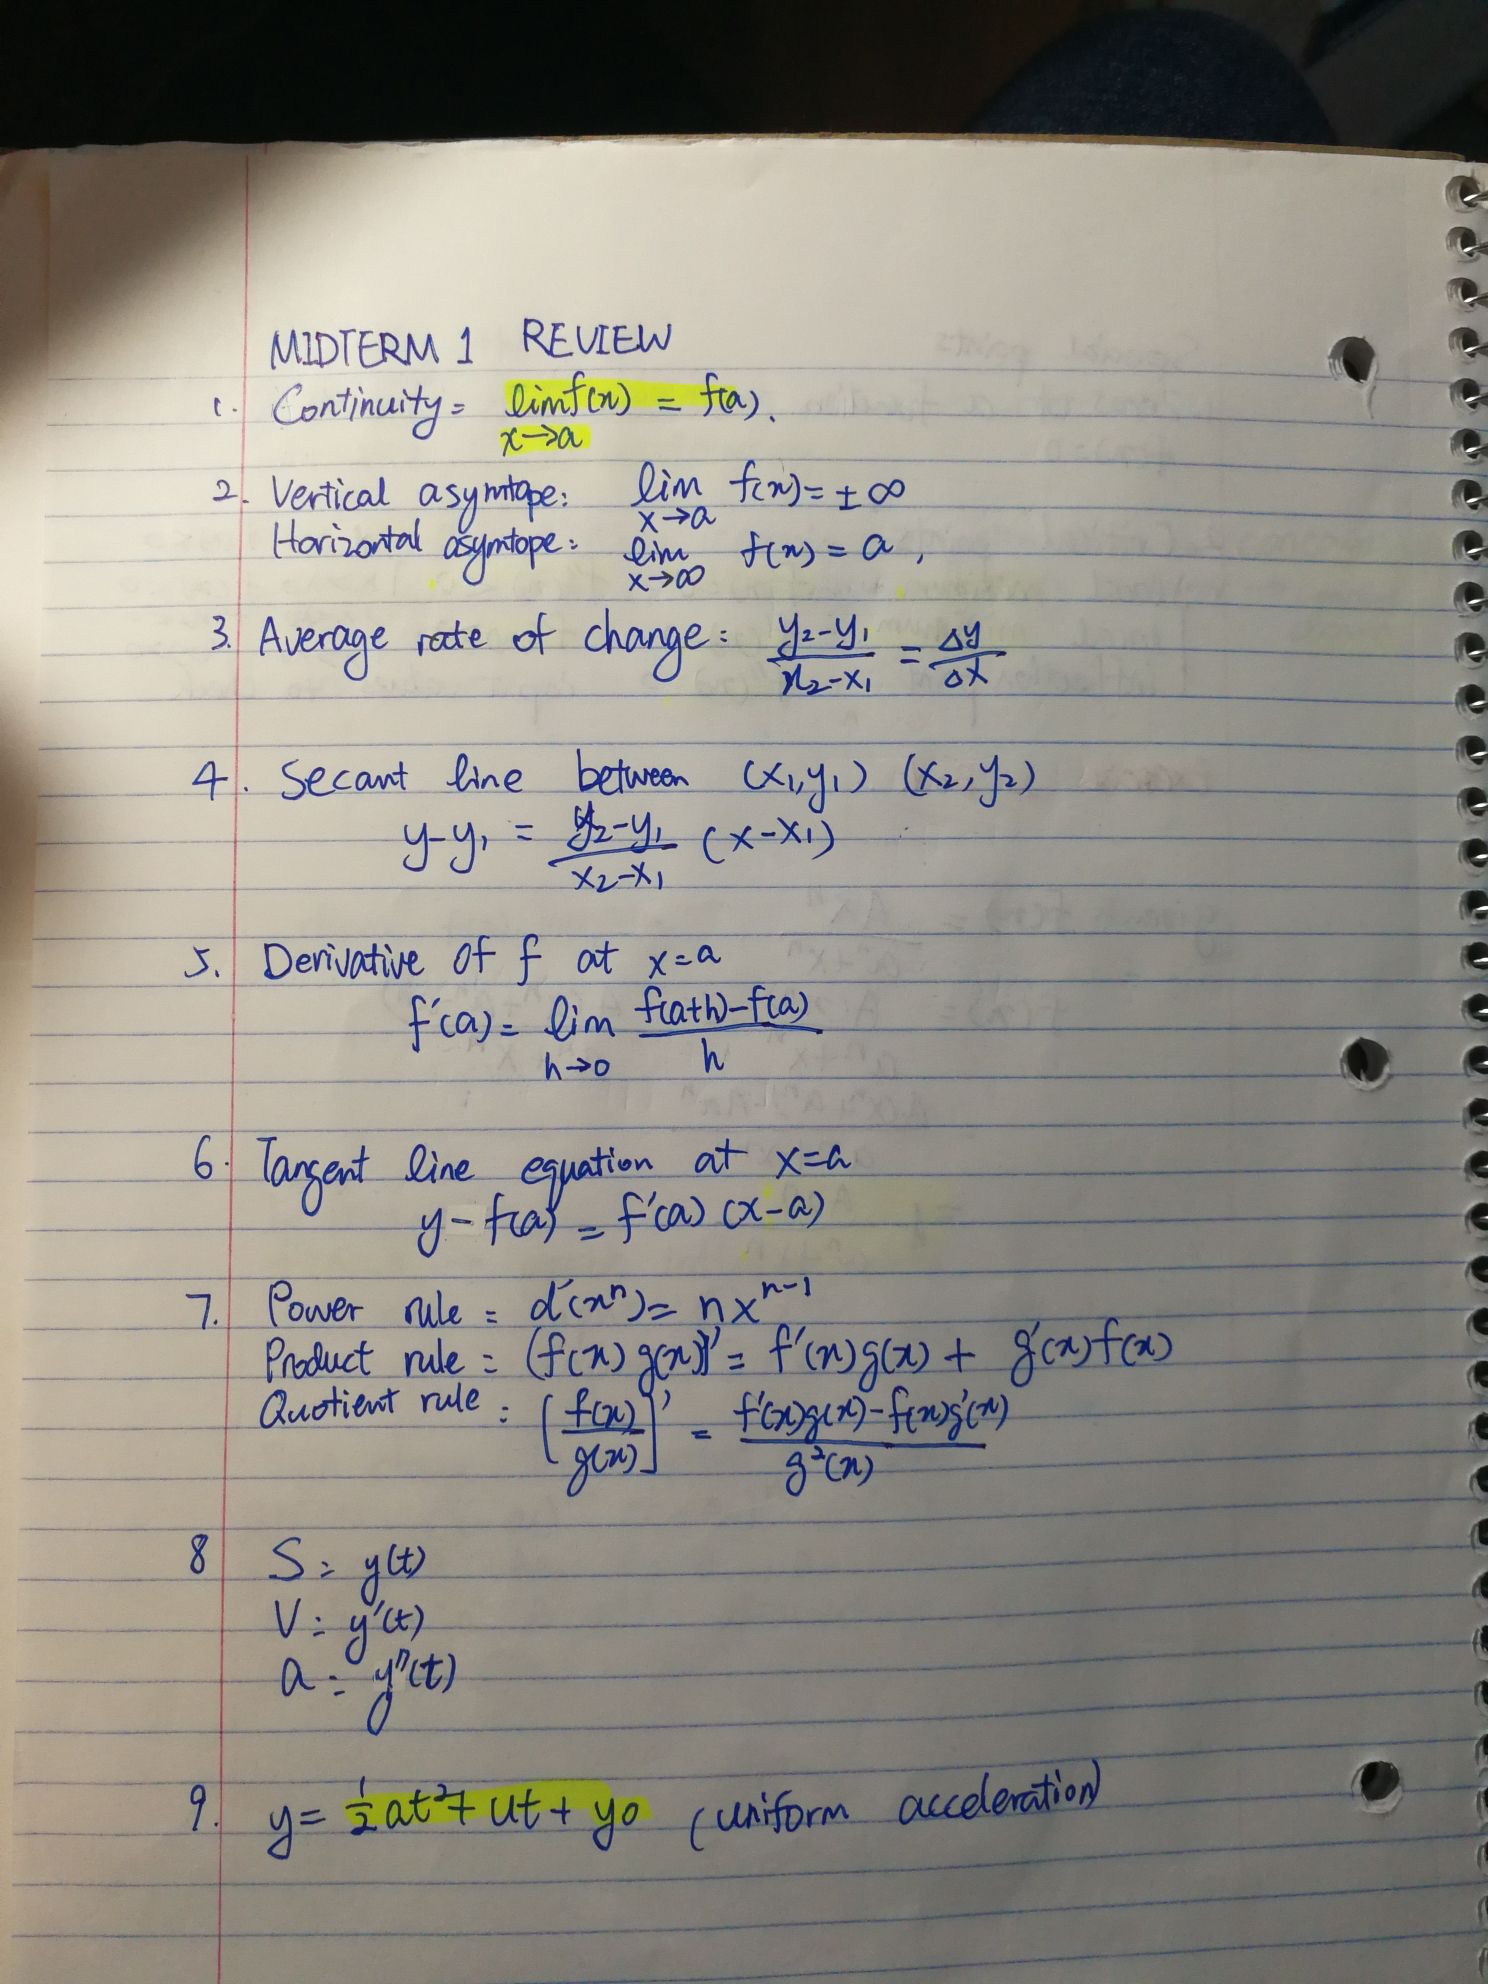 MIDTERM 1 REVIEW
1. Continuity = lim f(x) = f(a).
x→a
2. Vertical asymtope: lim f(x) = ± ∞
x→a
Horizontal asymtope: lim f(x) = a,
x→∞
3. Average rate of change: y₂-y₁/x₂-x₁ = Δy/Δx
4. Secant line between (x₁,y₁) (x₂,y₂)
y-y₁ = y₂-y₁/x₂-x₁ (x-x₁)
5. Derivative of f at x=a
f'(a) = lim f(a+h)-f(a)/h
h→0
6. Tangent line equation at x=a
y - f(a) = f'(a) (x-a)
7. Power rule = d'(xⁿ) = nxⁿ⁻¹
Product rule = (f(x) g(x))' = f'(x)g(x) + g'(x)f(x)
Quotient rule: [f(x)/g(x)]' = f'(x)g(x)-f(x)g'(x)/g²(x)
8 S = y(t)
V = y'(t)
a = y"(t)
9. y = ½at²+ut+y₀ (uniform acceleration)